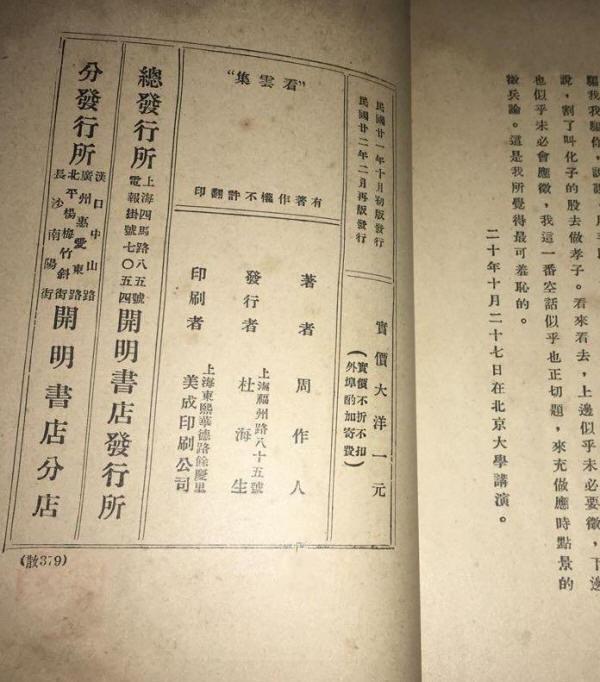 騙我我騙你，說
說，割了叫化子的股去做孝子。看來看去，上邊似乎未必要徵，下邊
也似乎未必會應徵，我這一番空話似乎也正切題，來充做應時點景的
徵兵論。這是我所覺得最可羞恥的。
二十年十月二十七日在北京大學講演。
民國廿一年十月初版發行
民國廿二年二月再版發行
實價大洋一元
(實價不折不扣
外埠酌加寄費)
“看雲集”
有著作權不許翻印
著者 周作人
發行者 上海福州路八十五號 杜海生
印刷者 上海東熙華德路餘慶里 美成印刷公司
總發行所 上海四馬路八五號 電報掛號七〇五四 開明書店發行所
分發行所
漢口中山路
廣州惠愛東路
北平楊梅竹斜街
長沙南陽街
開明書店分店
(散379)